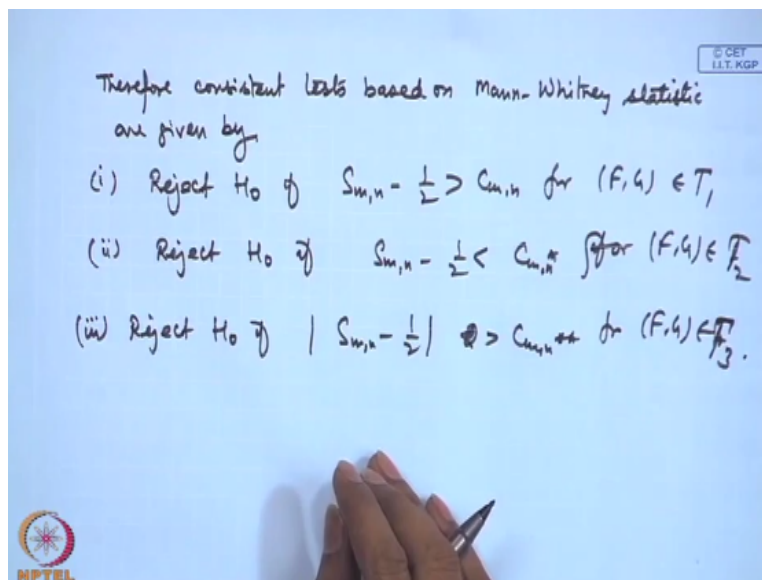 © CET
I.I.T. KGP
Therefore consistent tests based on Mann-Whitney statistic
are given by
(i) Reject H₀ if S_{m,n} - 1/2 > C_{m,n} for (F,G) ∈ T₁
(ii) Reject H₀ if S_{m,n} - 1/2 < C_{m,n}* for (F,G) ∈ T₂
(iii) Reject H₀ if | S_{m,n} - 1/2 | > C_{m,n}** for (F,G) ∈ T₃.
NPTEL